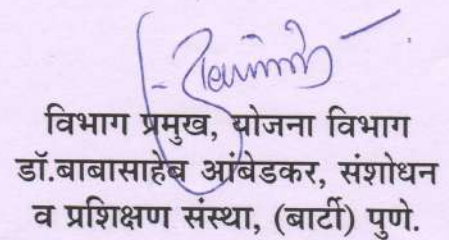 विभाग प्रमुख, योजना विभाग
डॉ.बाबासाहेब आंबेडकर, संशोधन
व प्रशिक्षण संस्था, (बार्टी) पुणे.